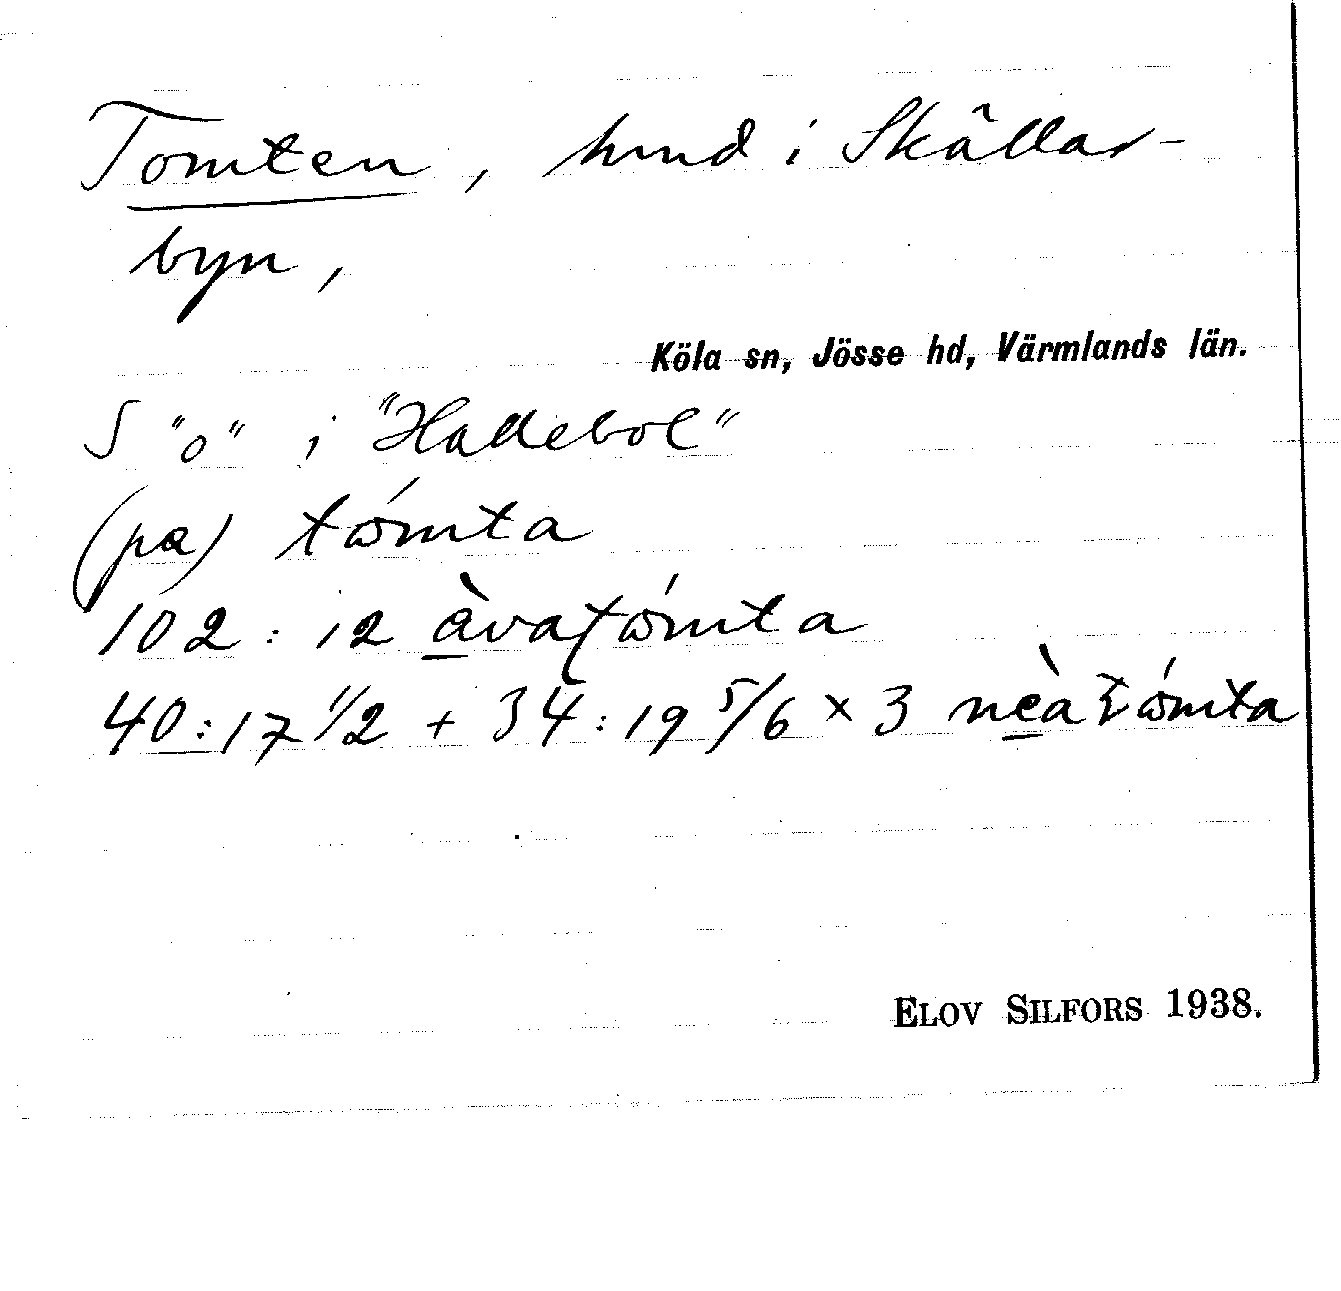 Tomten, hmd i Skällar-
byn,
Köla sn, Jösse hd, Värmlands län.
S "o" i "Hallebol"
(pa) tómta
102:12 àvatómta
40:17 1/2 + 34:19 5/6 x 3 nèatómta
ELOV SILFORS 1938.